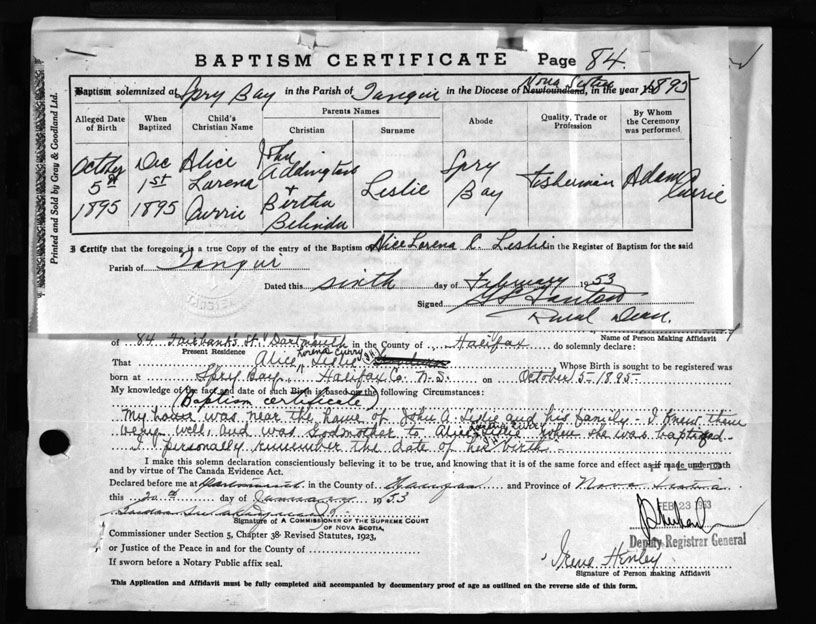 BAPTISM CERTIFICATE Page 84.
Baptism solemnized at Spry Bay in the Parish of Tangier in the Diocese of Newfoundland, Nova Scotia in the year 1895
Alleged Date of Birth | When Baptized | Child's Christian Name | Parents Names | Abode | Quality, Trade or Profession | By Whom the Ceremony was performed
Christian | Surname
October 5th 1895 | Dec 1st 1895 | Alice Lorena Currie | John Addington + Bertha Belinda | Leslie | Spry Bay | fisherman | Adam Currie
I Certify that the foregoing is a true Copy of the entry of the Baptism of Alice Lorena C. Leslie in the Register of Baptism for the said
Parish of Tangier
Dated this sixth day of February 1953
Signed
Rural Dean.
Printed and Sold by Gray & Goodland Ltd.
of 84 Fairbanks St. Dartmouth in the County of Halifax do solemnly declare:
Present Residence
Name of Person Making Affidavit
That Alice Lorena Curry Leslie Whose Birth is sought to be registered was
born at Spry Bay, Halifax Co. N.S. on October 5-1895-
My knowledge of the fact and date of such Birth is based on the following Circumstances:
(Baptism certificate)
My home was near the home of John A. Leslie and his family - I knew them
very well, and was Godmother to Alice Lorena Curry Leslie when she was baptized -
I personally remember the date of her birth -
I make this solemn declaration conscientiously believing it to be true, and knowing that it is of the same force and effect as if made under oath
and by virtue of The Canada Evidence Act.
Declared before me at Dartmouth in the County of Halifax and Province of Nova Scotia
this 20th day of January 1953
Signature of A COMMISSIONER OF THE SUPREME COURT
OF NOVA SCOTIA,
Commissioner under Section 5, Chapter 38 Revised Statutes, 1923,
or Justice of the Peace in and for the County of
If sworn before a Notary Public affix seal.
FEB 23 1953
Deputy Registrar General
Irene Henley
Signature of Person making Affidavit
This Application and Affidavit must be fully completed and accompanied by documentary proof of age as outlined on the reverse side of this form.